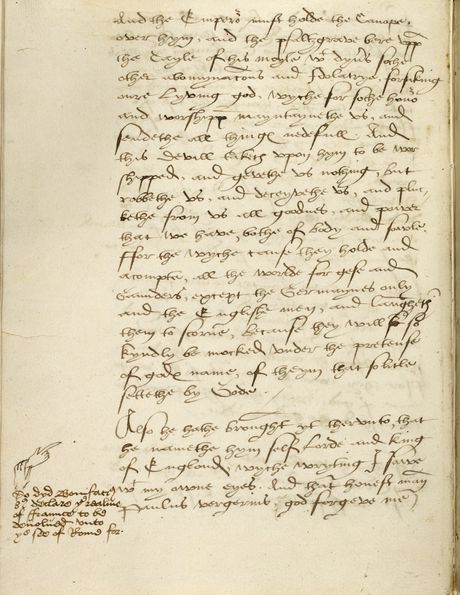 And the Emperor must holde the Canope,
over hym, and the psaltzgrave bere upp
the Tayle of his moyle wt dyvers soche
other abomynacons and Idolatrye, forsaking
oure Lyving god, wyche for soche honor
and worshipp mayntaynethe us, and
sendethe all thinges nedefull. And
this devill taketh upon hym to be wor
shepped, and gevethe us nothing, but
robbethe us, and deceyvethe us, and pluc
kethe from us all goodnes, and power
that we have, bothe of body and sowle.
ffor the wyche cause they holde and
acompte, all the worlde for gese and
Ganders, except the Germaynes only
and the Englishe men, and laugheth
them to scorne, because they will so
kyndly be mocked under the pretense
of godes name, of theym that so litle
settethe by Gode.
Also he hathe brought yt therunto, that
he namethe hym self Lorde and king
of Englond, wyche wryting I sawe
wt my owne eyes. And that honest man
Paulus vergerius, god forgeve me
So dyd Boniface
declare ye realme
of ffraunce to be
devolued unto
ye see of Rome for.